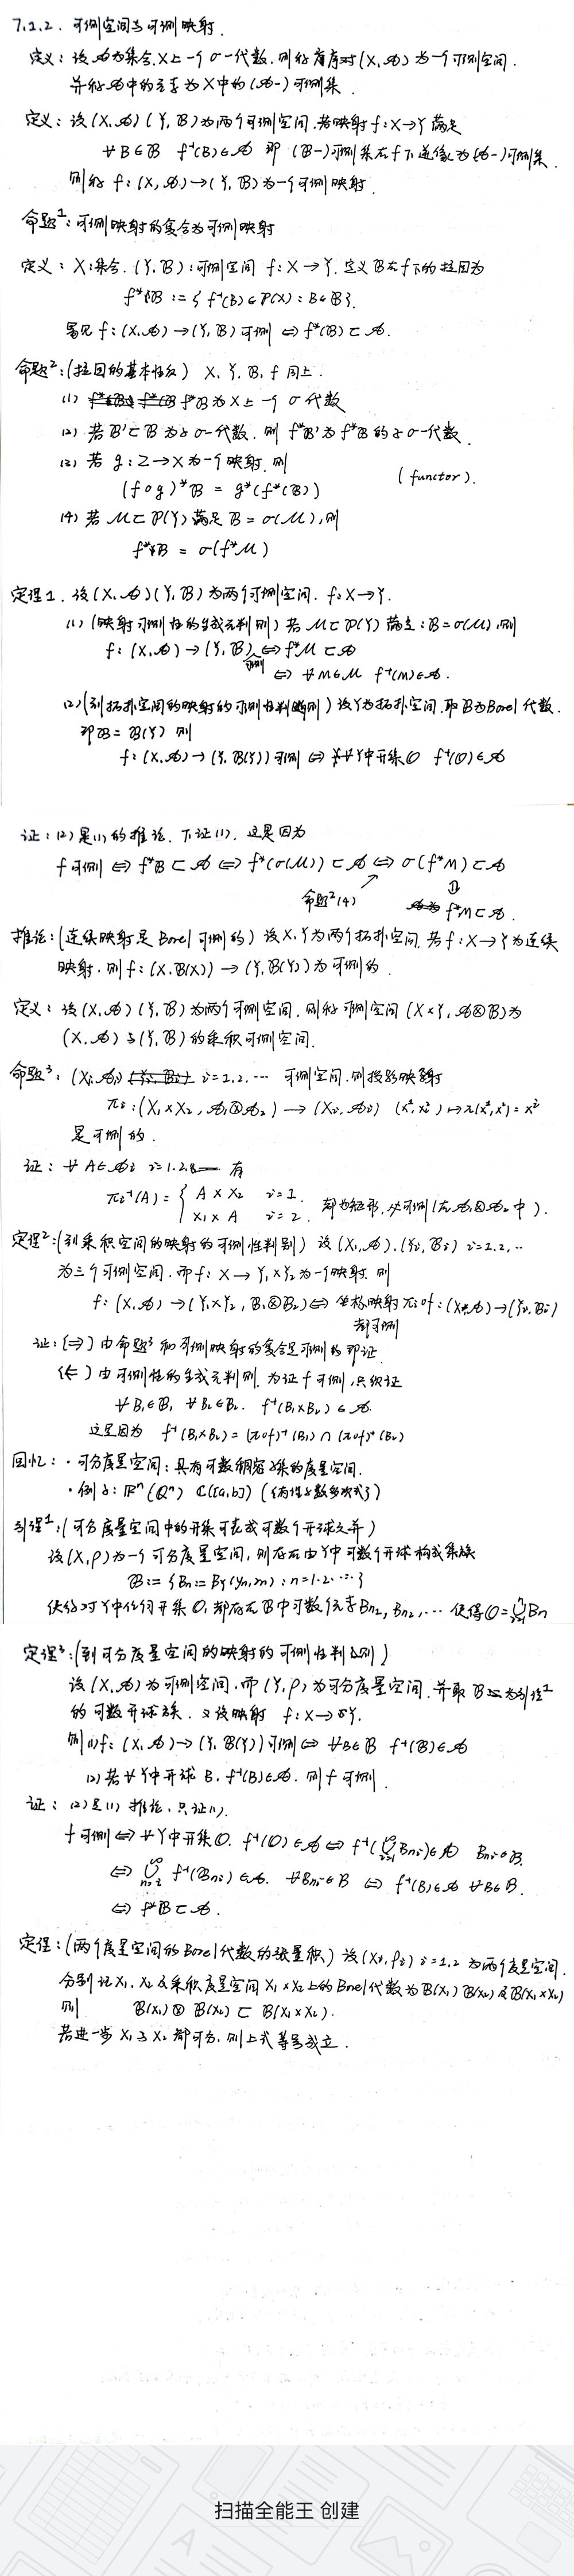 7.1.2. 可测空间与可测映射.
定义: 设𝒜为集合X上一个σ-代数. 则称有序对(X, 𝒜)为一个可测空间.
并称𝒜中的元素为X中的(𝒜-)可测集.
定义: 设(X, 𝒜) (Y, ℬ)为两个可测空间. 若映射f: X→Y 满足
∀B∈ℬ f⁻¹(B)∈𝒜 即 (ℬ-)可测集在f下逆像为(𝒜-)可测集.
则称 f: (X, 𝒜)→(Y, ℬ)为一个可测映射.
命题1: 可测映射的复合为可测映射
定义: X:集合. (Y, ℬ):可测空间 f: X→Y. 定义ℬ在f下的拉回为
f*ℬ := { f⁻¹(B)∈P(X): B∈ℬ }.
易见 f: (X, 𝒜)→(Y, ℬ) 可测 ⇔ f*(ℬ)⊂𝒜.
命题2: (拉回的基本性质) X, Y, ℬ, f 同上.
(1) f*ℬ为X上一个σ代数
(2) 若ℬ'⊂ℬ为子σ-代数. 则 f*ℬ'为f*ℬ的子σ-代数
(3) 若 g: Z→X为一个映射. 则
(f∘g)*ℬ = g*(f*(ℬ)) (functor).
(4) 若 M⊂P(Y) 满足 ℬ=σ(M), 则
f*ℬ = σ(f*M)
定理1. 设(X, 𝒜) (Y, ℬ)为两个可测空间. f: X→Y.
(1) (映射可测性的生成元判别) 若 M⊂P(Y) 满足: ℬ=σ(M), 则
f: (X, 𝒜)→(Y, ℬ)可测 ⇔ f*M⊂𝒜
⇔ ∀M∈M f⁻¹(M)∈𝒜.
(2) (到拓扑空间的映射的可测性判别) 设Y为拓扑空间. 取ℬ为Borel代数.
即ℬ=ℬ(Y) 则
f: (X, 𝒜)→(Y, ℬ(Y)) 可测 ⇔ ∀Y中开集O f⁻¹(O)∈𝒜
证: (2)是(1)的推论. 下证(1). 这是因为
f可测 ⇔ f*ℬ⊂𝒜 ⇔ f*(σ(M))⊂𝒜 ⇔ σ(f*M)⊂𝒜
命题2(4) ⇕ f*M⊂𝒜.
推论: (连续映射是Borel可测的) 设X, Y为两个拓扑空间. 若 f: X→Y为连续
映射. 则 f: (X, ℬ(X))→(Y, ℬ(Y))为可测的.
定义: 设(X, 𝒜) (Y, ℬ)为两个可测空间, 则称可测空间 (X×Y, 𝒜⊗ℬ)为
(X, 𝒜)与(Y, ℬ)的乘积可测空间.
命题3: (Xi, 𝒜i) i=1,2,⋯ 可测空间. 则投影映射
πi: (X₁×X₂, 𝒜₁⊗𝒜₂)→(Xi, 𝒜i) (x¹, x²)↦π(x¹,x²)=xⁱ
是可测的.
证: ∀A∈𝒜i i=1.2. 有
πi⁻¹(A) = { A×X₂ i=1.
X₁×A i=2. 都为矩形, 从可测(在𝒜₁⊗𝒜₂中).
定理2: (到乘积空间的映射的可测性判别) 设(X, 𝒜), (Yi, ℬi) i=1.2,⋯
为三个可测空间. 而f: X→Y₁×Y₂为一个映射. 则
f: (X, 𝒜)→(Y₁×Y₂, ℬ₁⊗ℬ₂) ⇔ 坐标映射 πi∘f: (X, 𝒜)→(Yi, ℬi)
都可测
证: (⇒) 由命题3和可测映射的复合是可测的即证
(⇐) 由可测性的生成元判别. 为证f可测, 只须证
∀B₁∈ℬ₁ ∀B₂∈ℬ₂. f⁻¹(B₁×B₂)∈𝒜.
这是因为 f⁻¹(B₁×B₂) = (π∘f)⁻¹(B₁)∩(π∘f)⁻¹(B₂)
回忆: · 可分度量空间: 具有可数稠密子集的度量空间.
· 例子: ℝⁿ(ℚⁿ) C([a,b]) (有理系数多项式)
引理1: (可分度量空间中的开集可表成可数个开球之并)
设(X, ρ)为一个可分度量空间, 则存在由Y中可数个开球构成集族
ℬ := {Bn := BY(yn, rn): n=1.2.⋯}
使得对Y中任何开集O, 都存在ℬ中可数个元素Bn₁, Bn₂, ⋯ 使得O=∪Bn
定理3: (到可分度量空间的映射的可测性判别)
设(X, 𝒜)为可测空间. 而(Y, ρ)为可分度量空间. 并取ℬ为引理1
的可数开球族. 又设映射 f: X→Y.
则(1) f: (X, 𝒜)→(Y, ℬ(Y)) 可测 ⇔ ∀B∈ℬ f⁻¹(B)∈𝒜
(2) 若∀Y中开球B. f⁻¹(B)∈𝒜. 则f可测.
证: (2)是(1)推论. 只证(1).
f可测 ⇔ ∀Y中开集O. f⁻¹(O)∈𝒜 ⇔ f⁻¹(∪Bni)∈𝒜 Bni∈ℬ
⇔ ∪f⁻¹(Bni)∈𝒜. ∀Bni∈ℬ ⇔ f⁻¹(B)∈𝒜 ∀B∈ℬ.
⇔ f*ℬ⊂𝒜.
定理: (两个度量空间的Borel代数的张量积) 设(Xi, ρi) i=1.2 为两个度量空间.
分别记X₁, X₂及乘积度量空间X₁×X₂上的Borel代数为ℬ(X₁) ℬ(X₂) 及ℬ(X₁×X₂)
则 ℬ(X₁)⊗ℬ(X₂)⊂ℬ(X₁×X₂).
若进一步X₁与X₂都可分, 则上式等号成立.
扫描全能王 创建